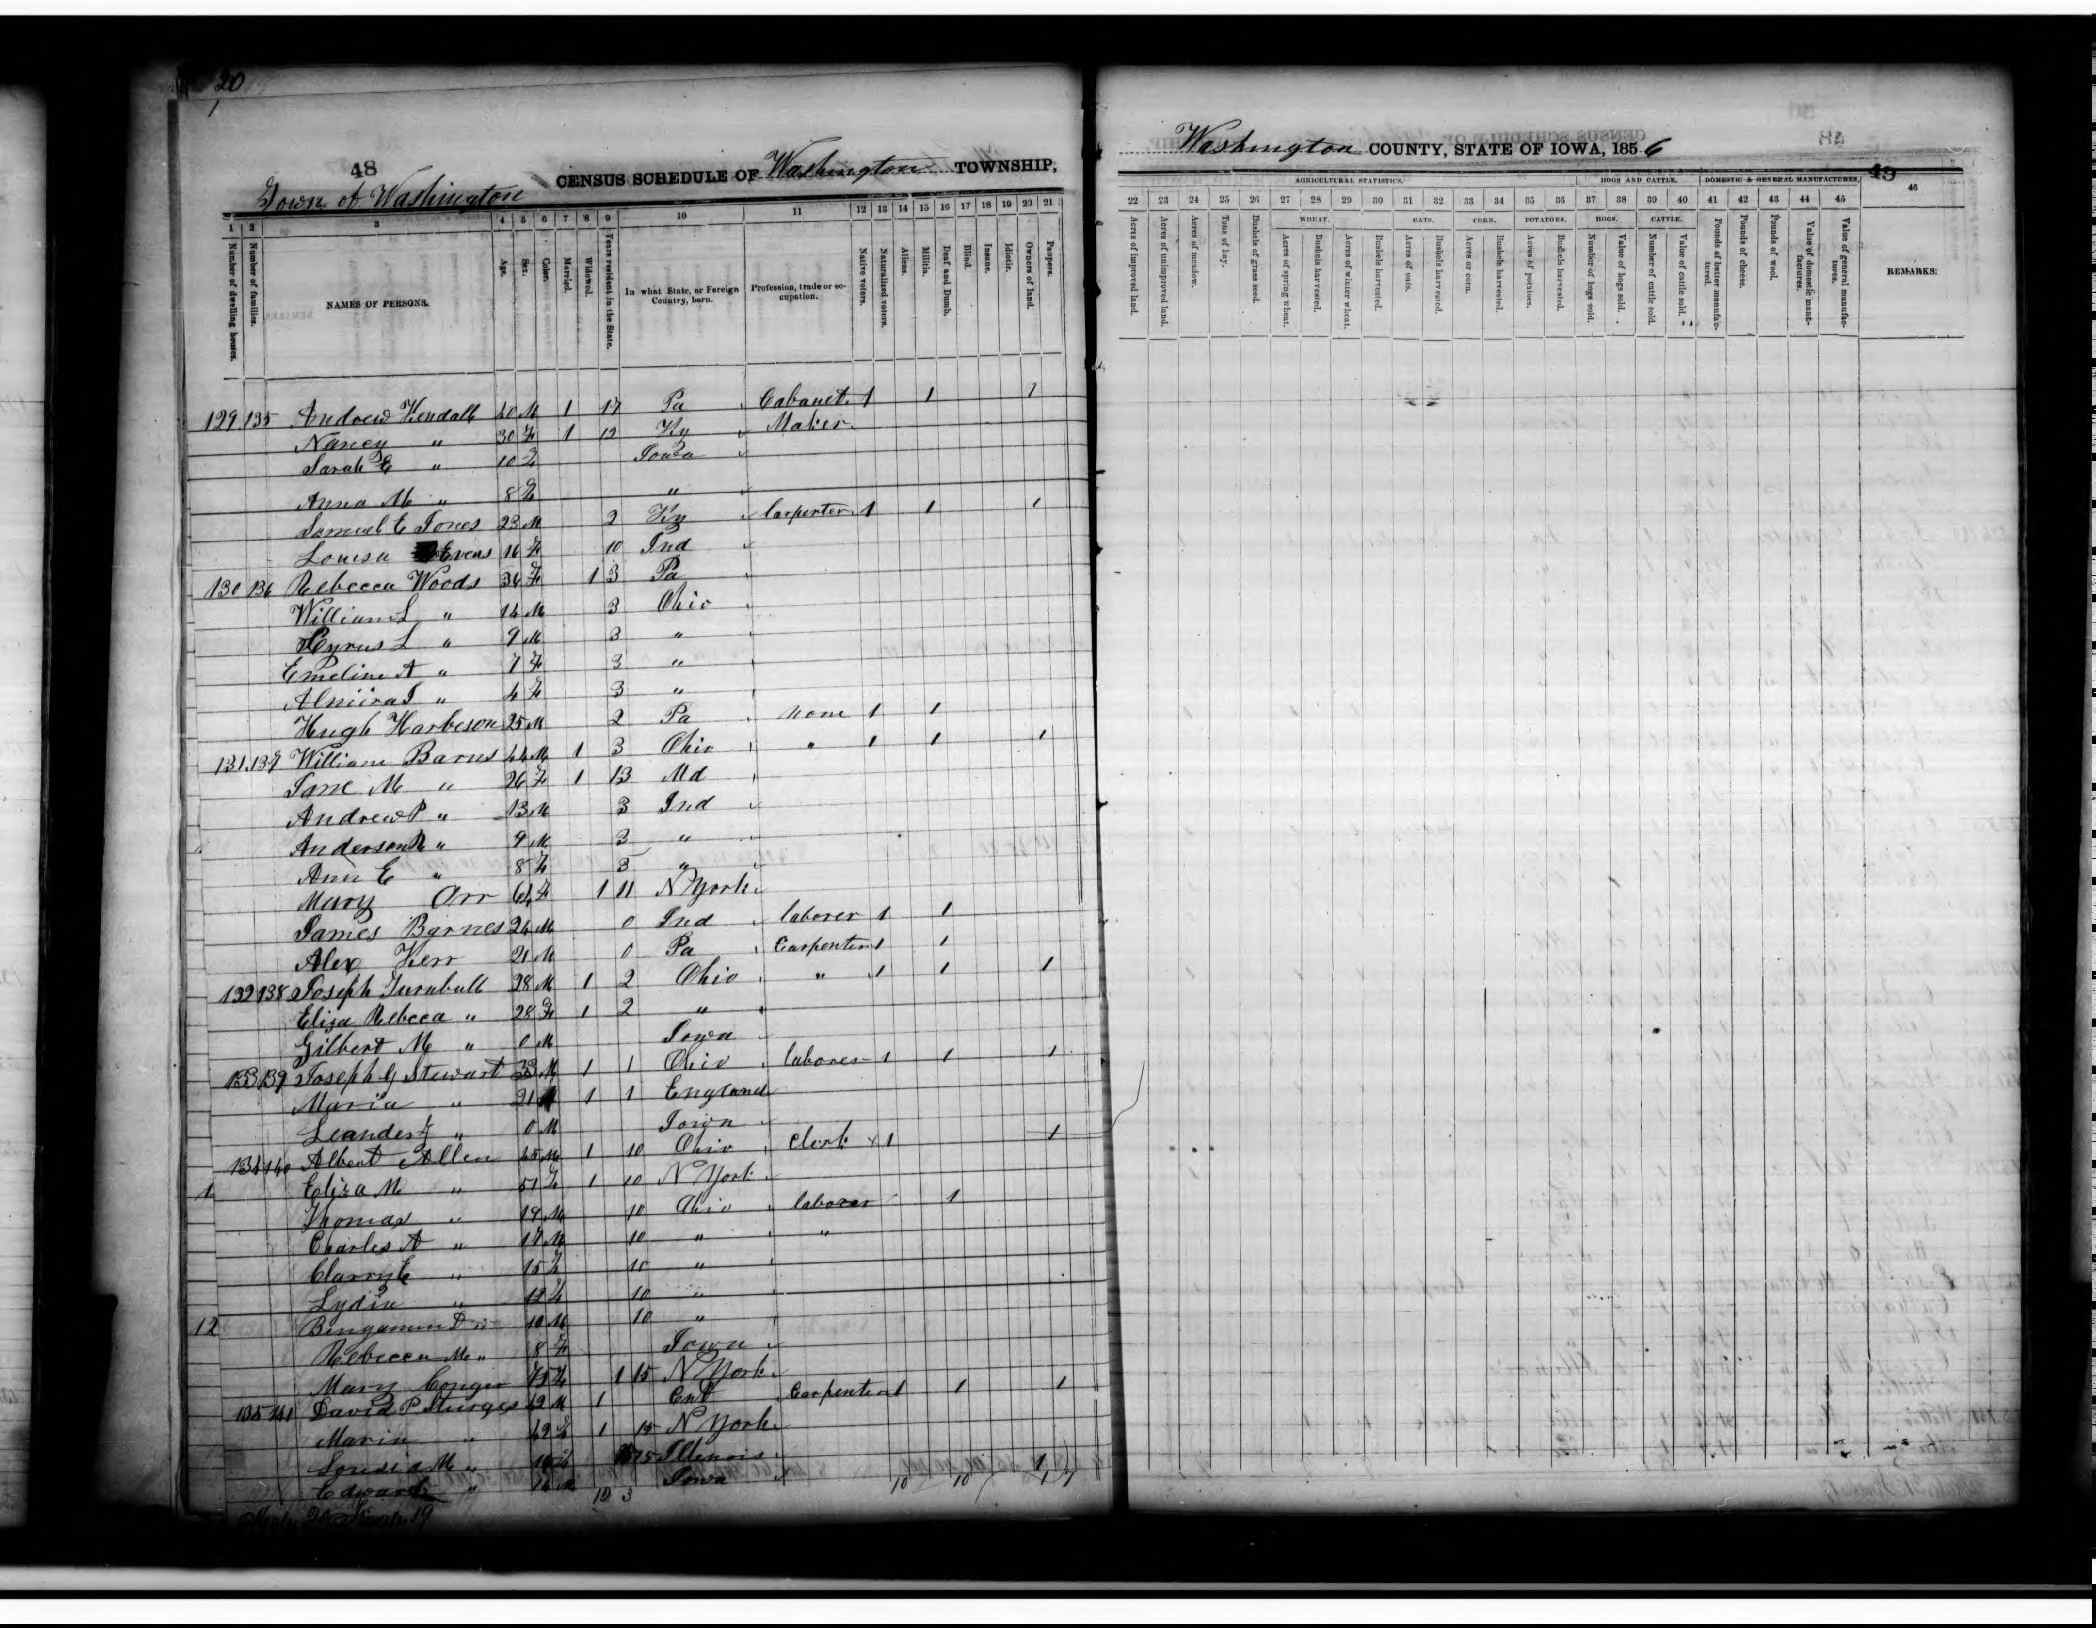 20
1
48
Town of Washington
CENSUS SCHEDULE OF Washington TOWNSHIP,
1 2 3 4 5 6 7 8 9 10 11 12 13 14 15 16 17 18 19 20 21
Number of dwelling houses. Number of families. NAMES OF PERSONS. Age. Sex. Color. Married. Widowed. Years resident in the State. In what State, or Foreign Country, born. Profession, trade or occupation. Native voters. Naturalized voters. Aliens. Militia. Deaf and Dumb. Blind. Insane. Idiotic. Owners of land. Paupers.
129 135 Andrew Kendall 40 M 1 17 Pa Cabanet 1 1 1
Nancy " 30 F 1 12 Ky Maker
Sarah E " 10 F Iowa
Anna M " 8 F "
Samuel E Jones 23 M 2 Ky Carpenter 1 1 1
Louisa Evens 16 F 10 Ind
130 136 Rebecca Woods 34 F 1 3 Pa
William L " 14 M 3 Ohio
Cyrus L " 9 M 3 "
Emeline A " 7 F 3 "
Almira J " 4 F 3 "
Hugh Harbeson 25 M 2 Pa none 1 1
131 137 William Barns 44 M 1 3 Ohio " 1 1 1
Jane M " 26 F 1 13 Md
Andrew P " 13 M 3 Ind
Anderson R " 9 M 3 "
Ann E " 8 F 3 "
Mary Orr 64 F 1 11 N York
James Barnes 24 M 0 Ind laborer 1 1
Alex Kerr 21 M 0 Pa Carpenter 1 1
132 138 Joseph Turnbull 28 M 1 2 Ohio " 1 1 1
Eliza Rebeca " 28 F 1 2 "
Gilbert M " 0 M Iowa
133 139 Joseph G Stewart 33 M 1 1 Ohio laborer 1 1 1
Maria " 21 1 1 England
Leander " 0 M Iowa
134 140 Albert Allen 45 M 1 10 Ohio Clerk 1 1
1 Eliza M " 51 F 1 10 N York
Thomas " 19 M 10 Ohio laborer 1
Charles A " 17 M 10 " "
Clarry E " 15 F 10 "
Lydia " 12 F 10 "
12 Bengamin D " 10 M 10 "
Rebecca M " 8 F Iowa
Mary Conger 75 F 1 15 N York
135 141 David P Sturges 49 M 1 Cnt Carpenter 1 1 1
Maria " 49 F 1 15 N York
Louisa M " 16 F 15 Illenois
Edward " 14 M Iowa
12 3 10 10 1 7
19
Washington COUNTY, STATE OF IOWA, 1856
49
AGRICULTURAL STATISTICS. HOGS AND CATTLE. DOMESTIC & GENERAL MANUFACTURES.
22 23 24 25 26 27 28 29 30 31 32 33 34 35 36 37 38 39 40 41 42 43 44 45 46
WHEAT. OATS. CORN. POTATOES. HOGS. CATTLE.
Acres of improved land. Acres of unimproved land. Acres of meadow. Tons of hay. Bushels of grass seed. Acres of spring wheat. Bushels harvested. Acres of winter wheat. Bushels harvested. Acres of oats. Bushels harvested. Acres or corn. Bushels harvested. Acres of potatoes. Bushels harvested. Number of hogs sold. Value of hogs sold. Number of cattle sold. Value of cattle sold. Pounds of butter manufactured. Pounds of cheese. Pounds of wool. Value of domestic manufactures. Value of general manufactures. REMARKS.